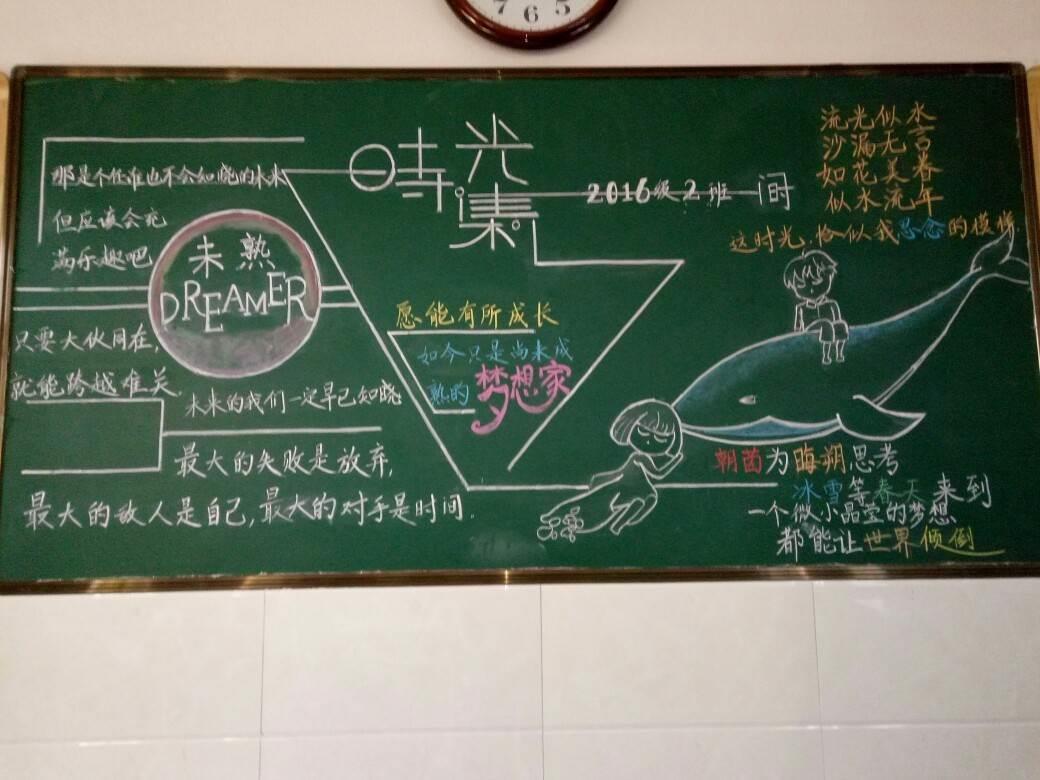 7 6 5
时光集
2016级2班
间
那是个任谁也不会知晓的未来
但应该会充
满乐趣吧
未熟
DREAMER
只要大伙同在,
就能跨越难关.
未来的我们一定早已知晓
最大的失败是放弃,
最大的敌人是自己,最大的对手是时间.
愿能有所成长
如今只是尚未成
熟的梦想家
流光似水
沙漏无言
如花美眷
似水流年
这时光,恰似我思念的模样.
朝菌为晦朔思考
冰雪等春天来到
一个微小晶莹的梦想
都能让世界倾倒